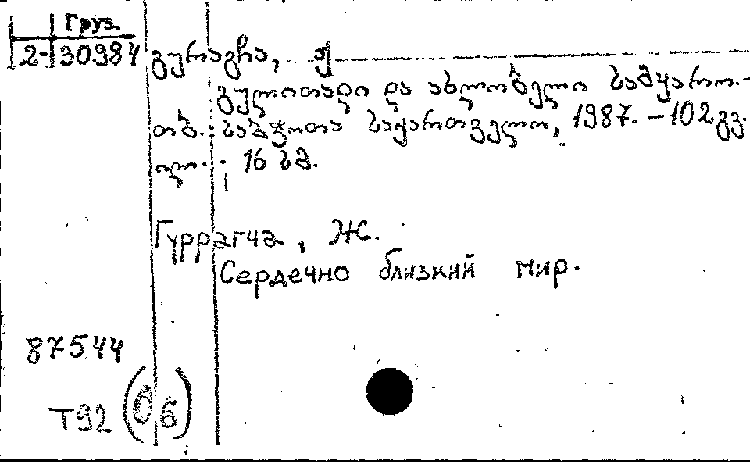 Груз.
2-30984
გურაგჩა, ჟ
გულითადი და ახლობელი სამყარო.-
თბ.: საბჭოთა საქართველო, 1987. - 102 გვ.
ილ. ; 16 სმ.
Гуррагча, Ж.
Сердечно близкий мир.
87544
Т92 (06)